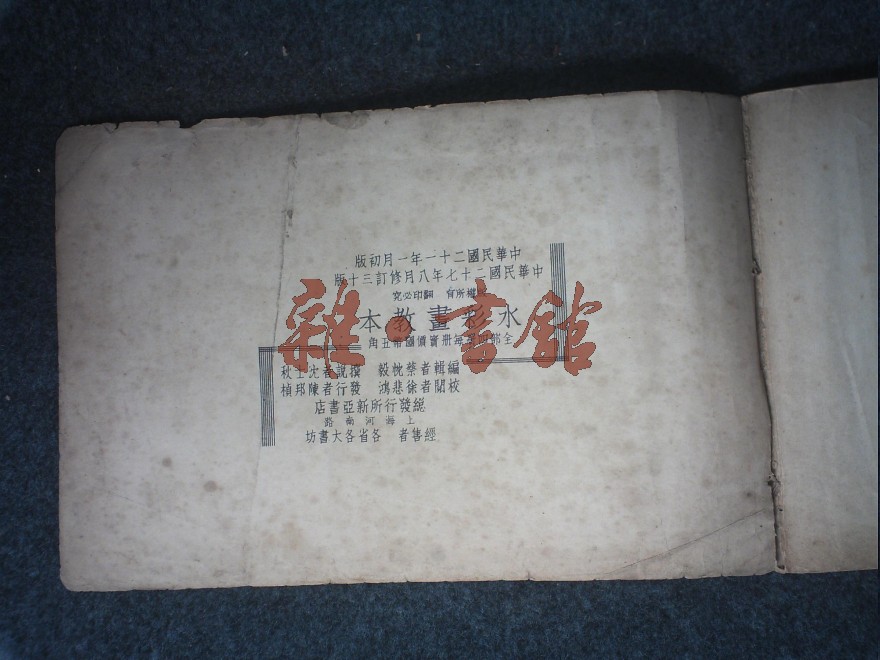 中華民國二十一年一月初版
中華民國二十七年八月修訂三十版
權所有 翻印必究
水彩畫教本
全部四冊每冊實價國幣五角
編輯者蔡忱毅 撰說者沈士秋
校閱者徐悲鴻 發行者陳邦楨
總發行所新亞書店
上海河南路
經售者 各省各大書坊
雜·書館